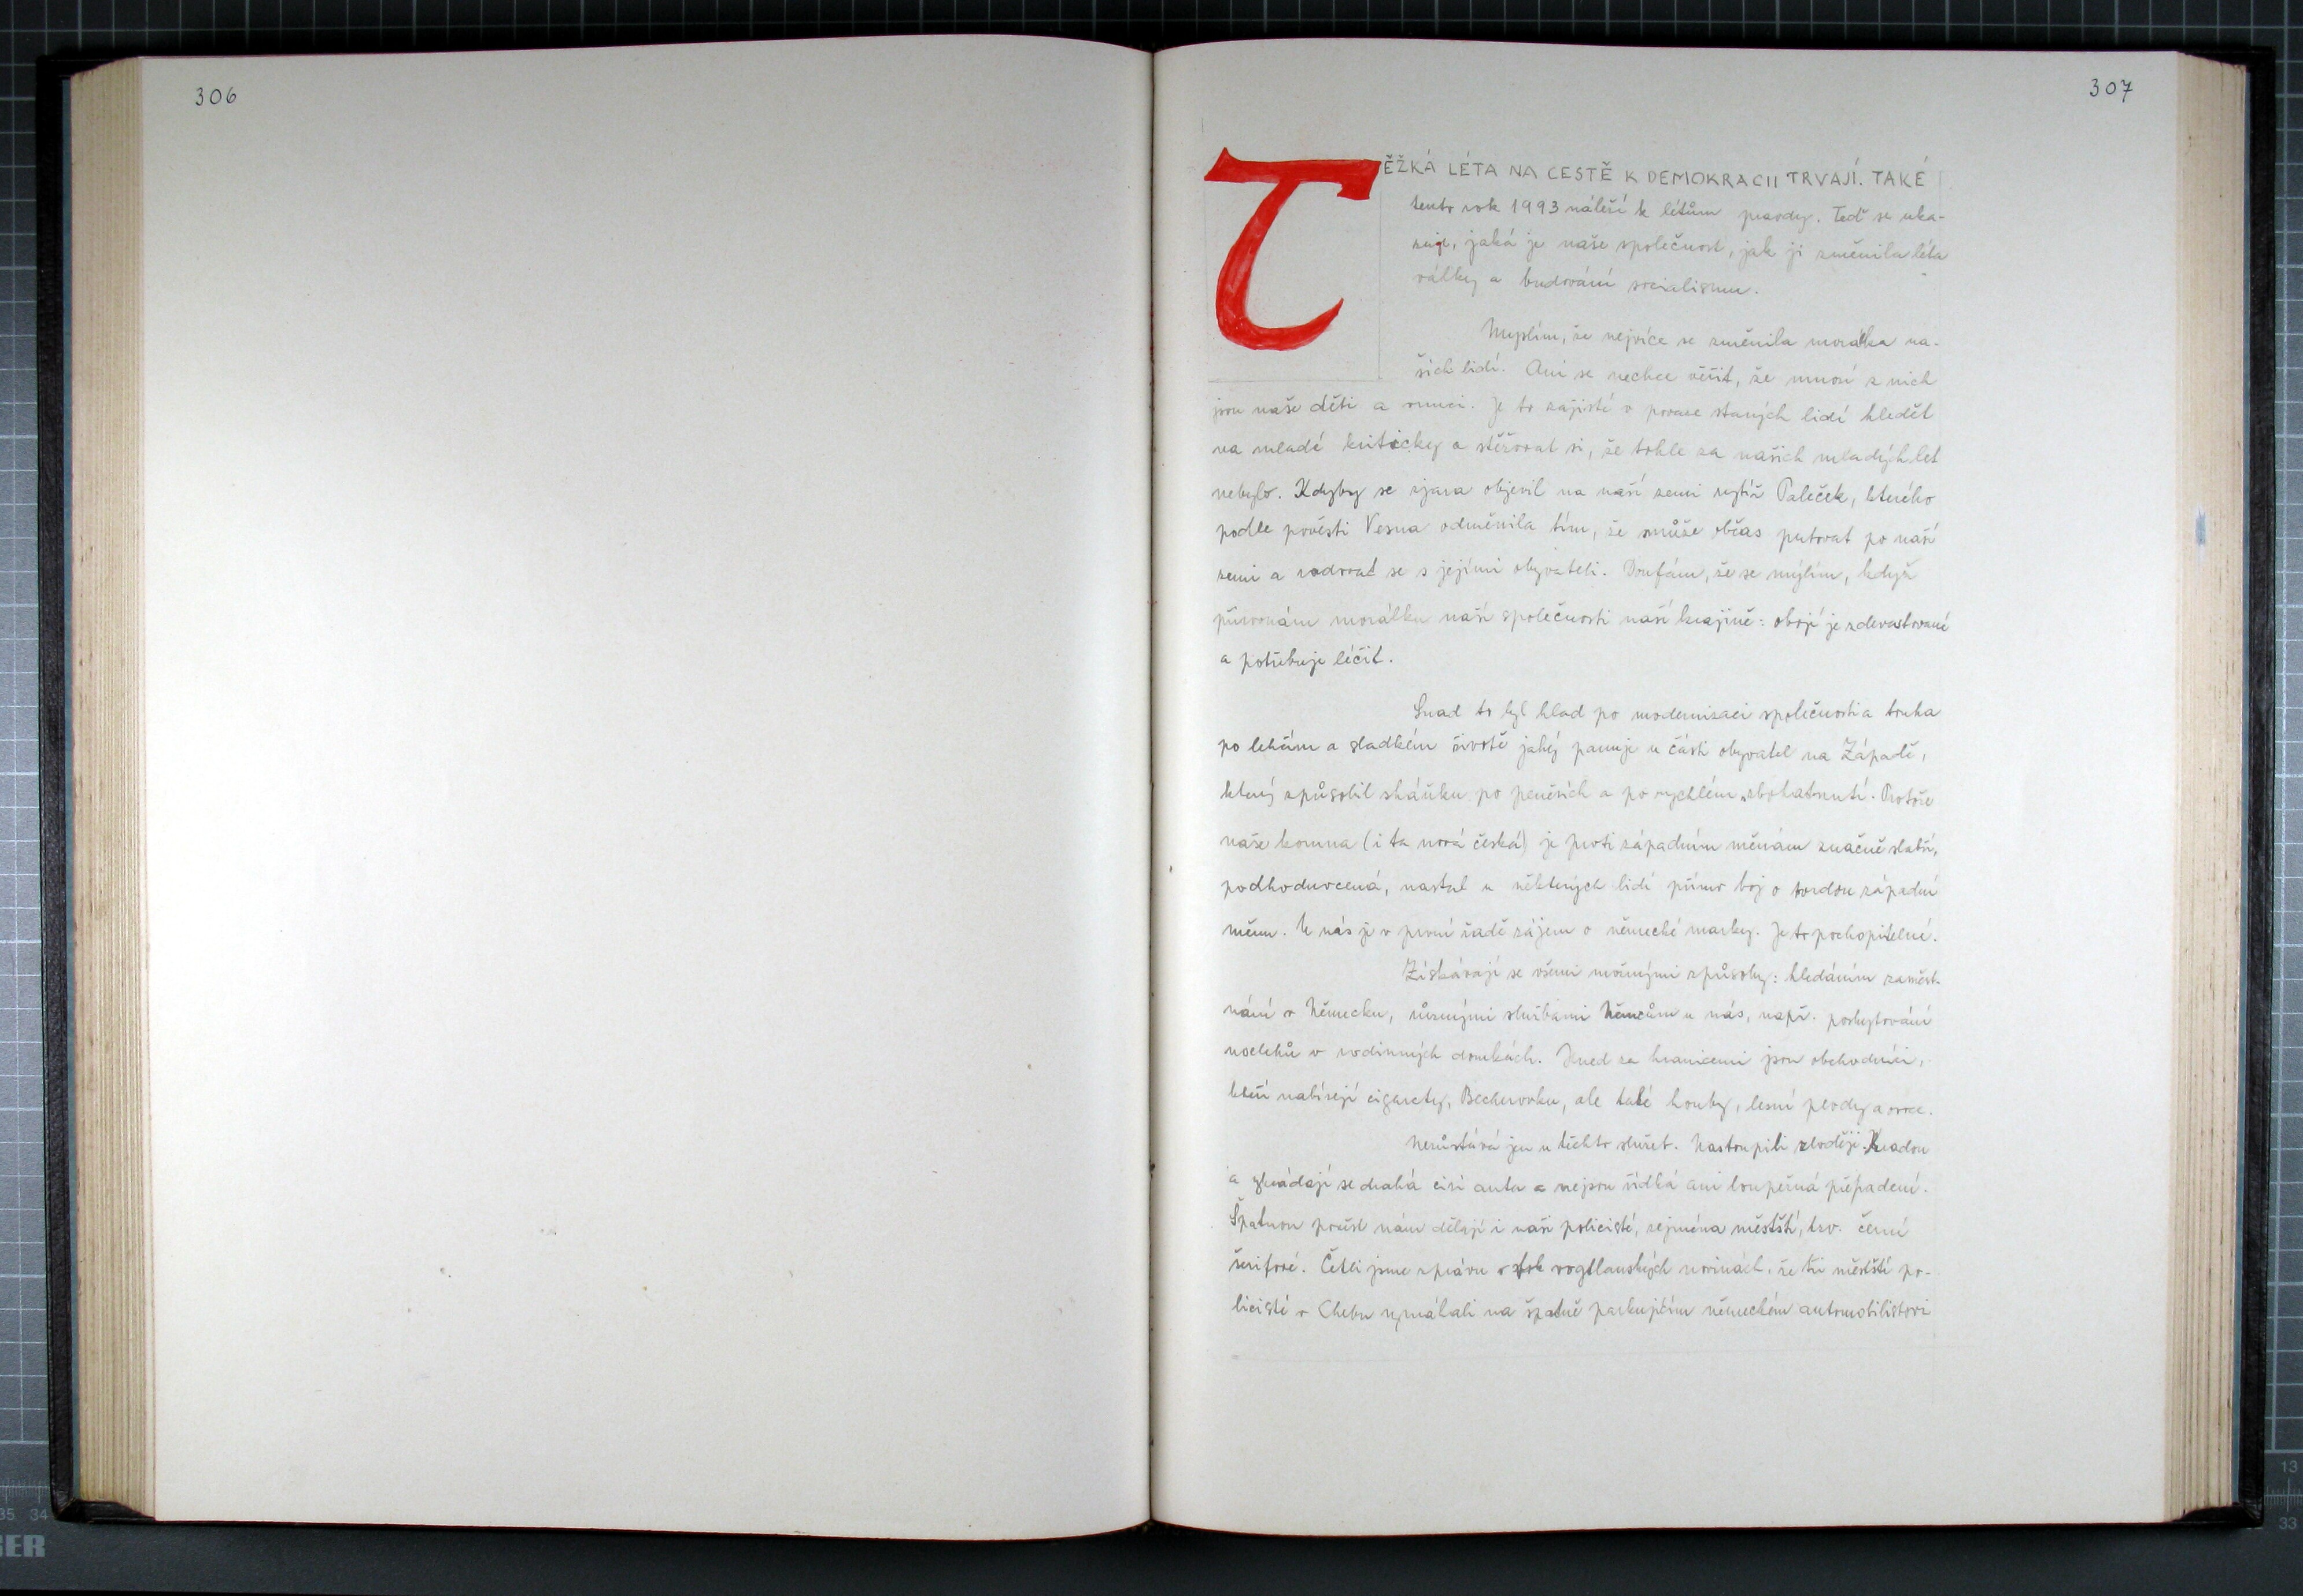 306
307
TĚŽKÁ LÉTA NA CESTĚ K DEMOKRACII TRVAJÍ. TAKÉ
tento rok 1993 náleží k létům pravdy. Teď se uka-
zuje, jaká je naše společnost, jak ji změnila léta
války a budování socialismu.
Myslím, že nejvíce se změnila morálka na-
šich lidí. Ani se nechce věřit, že mnozí z nich
jsou naše děti a vnuci. Je to zajisté v povaze starých lidí hledět
na mladé kriticky a stěžovat si, že tohle za našich mladých let
nebylo. Kdyby se zjara objevil na naší zemi rytíř Paleček, kterého
podle pověsti Vesna odměnila tím, že smůže občas putovat po naší
zemi a radovat se s jejími obyvateli. Doufám, že se mýlím, když
přirovnám morálku naší společnosti naší krajině: obojí je zdevastované
a potřebuje léčit.
Snad to byl hlad po modernizaci společnosti a touha
po lehčím a sladkém životě jaký panuje u části obyvatel na Západě,
který způsobil sháňku po penězích a po rychlém zbohatnutí. Protože
naše koruna (i ta nová česká) je proti západním měnám značně slabší,
podhodnocená, nastal u některých lidí přímo boj o tvrdou západní
měnu. U nás je v první řadě zájem o německé marky. Je to pochopitelné.
Získávají se všemi možnými způsoby: hledáním zaměst-
nání v Německu, různými službami Němcům u nás, např. poskytování
noclehů v rodinných domkách. Hned za hranicemi jsou obchodníci,
kteří nabízejí cigarety, Becherovku, ale také houby, lesní plody a ovoce.
Nezůstává jen u těchto služeb. Nastoupili zloději. Kradou
a vykrádají se drahá cizí auta a nejsou řídká ani loupežná přepadení.
Špatnou pověst nám dělají i naši policisté, zejména městští, tzv. černí
šerifové. Četli jsme zprávu v vogtlanských novinách, že tři městští po-
licisté v Chebu vymáhali na špatně parkujícím německém automobilistovi
13
33
35 34